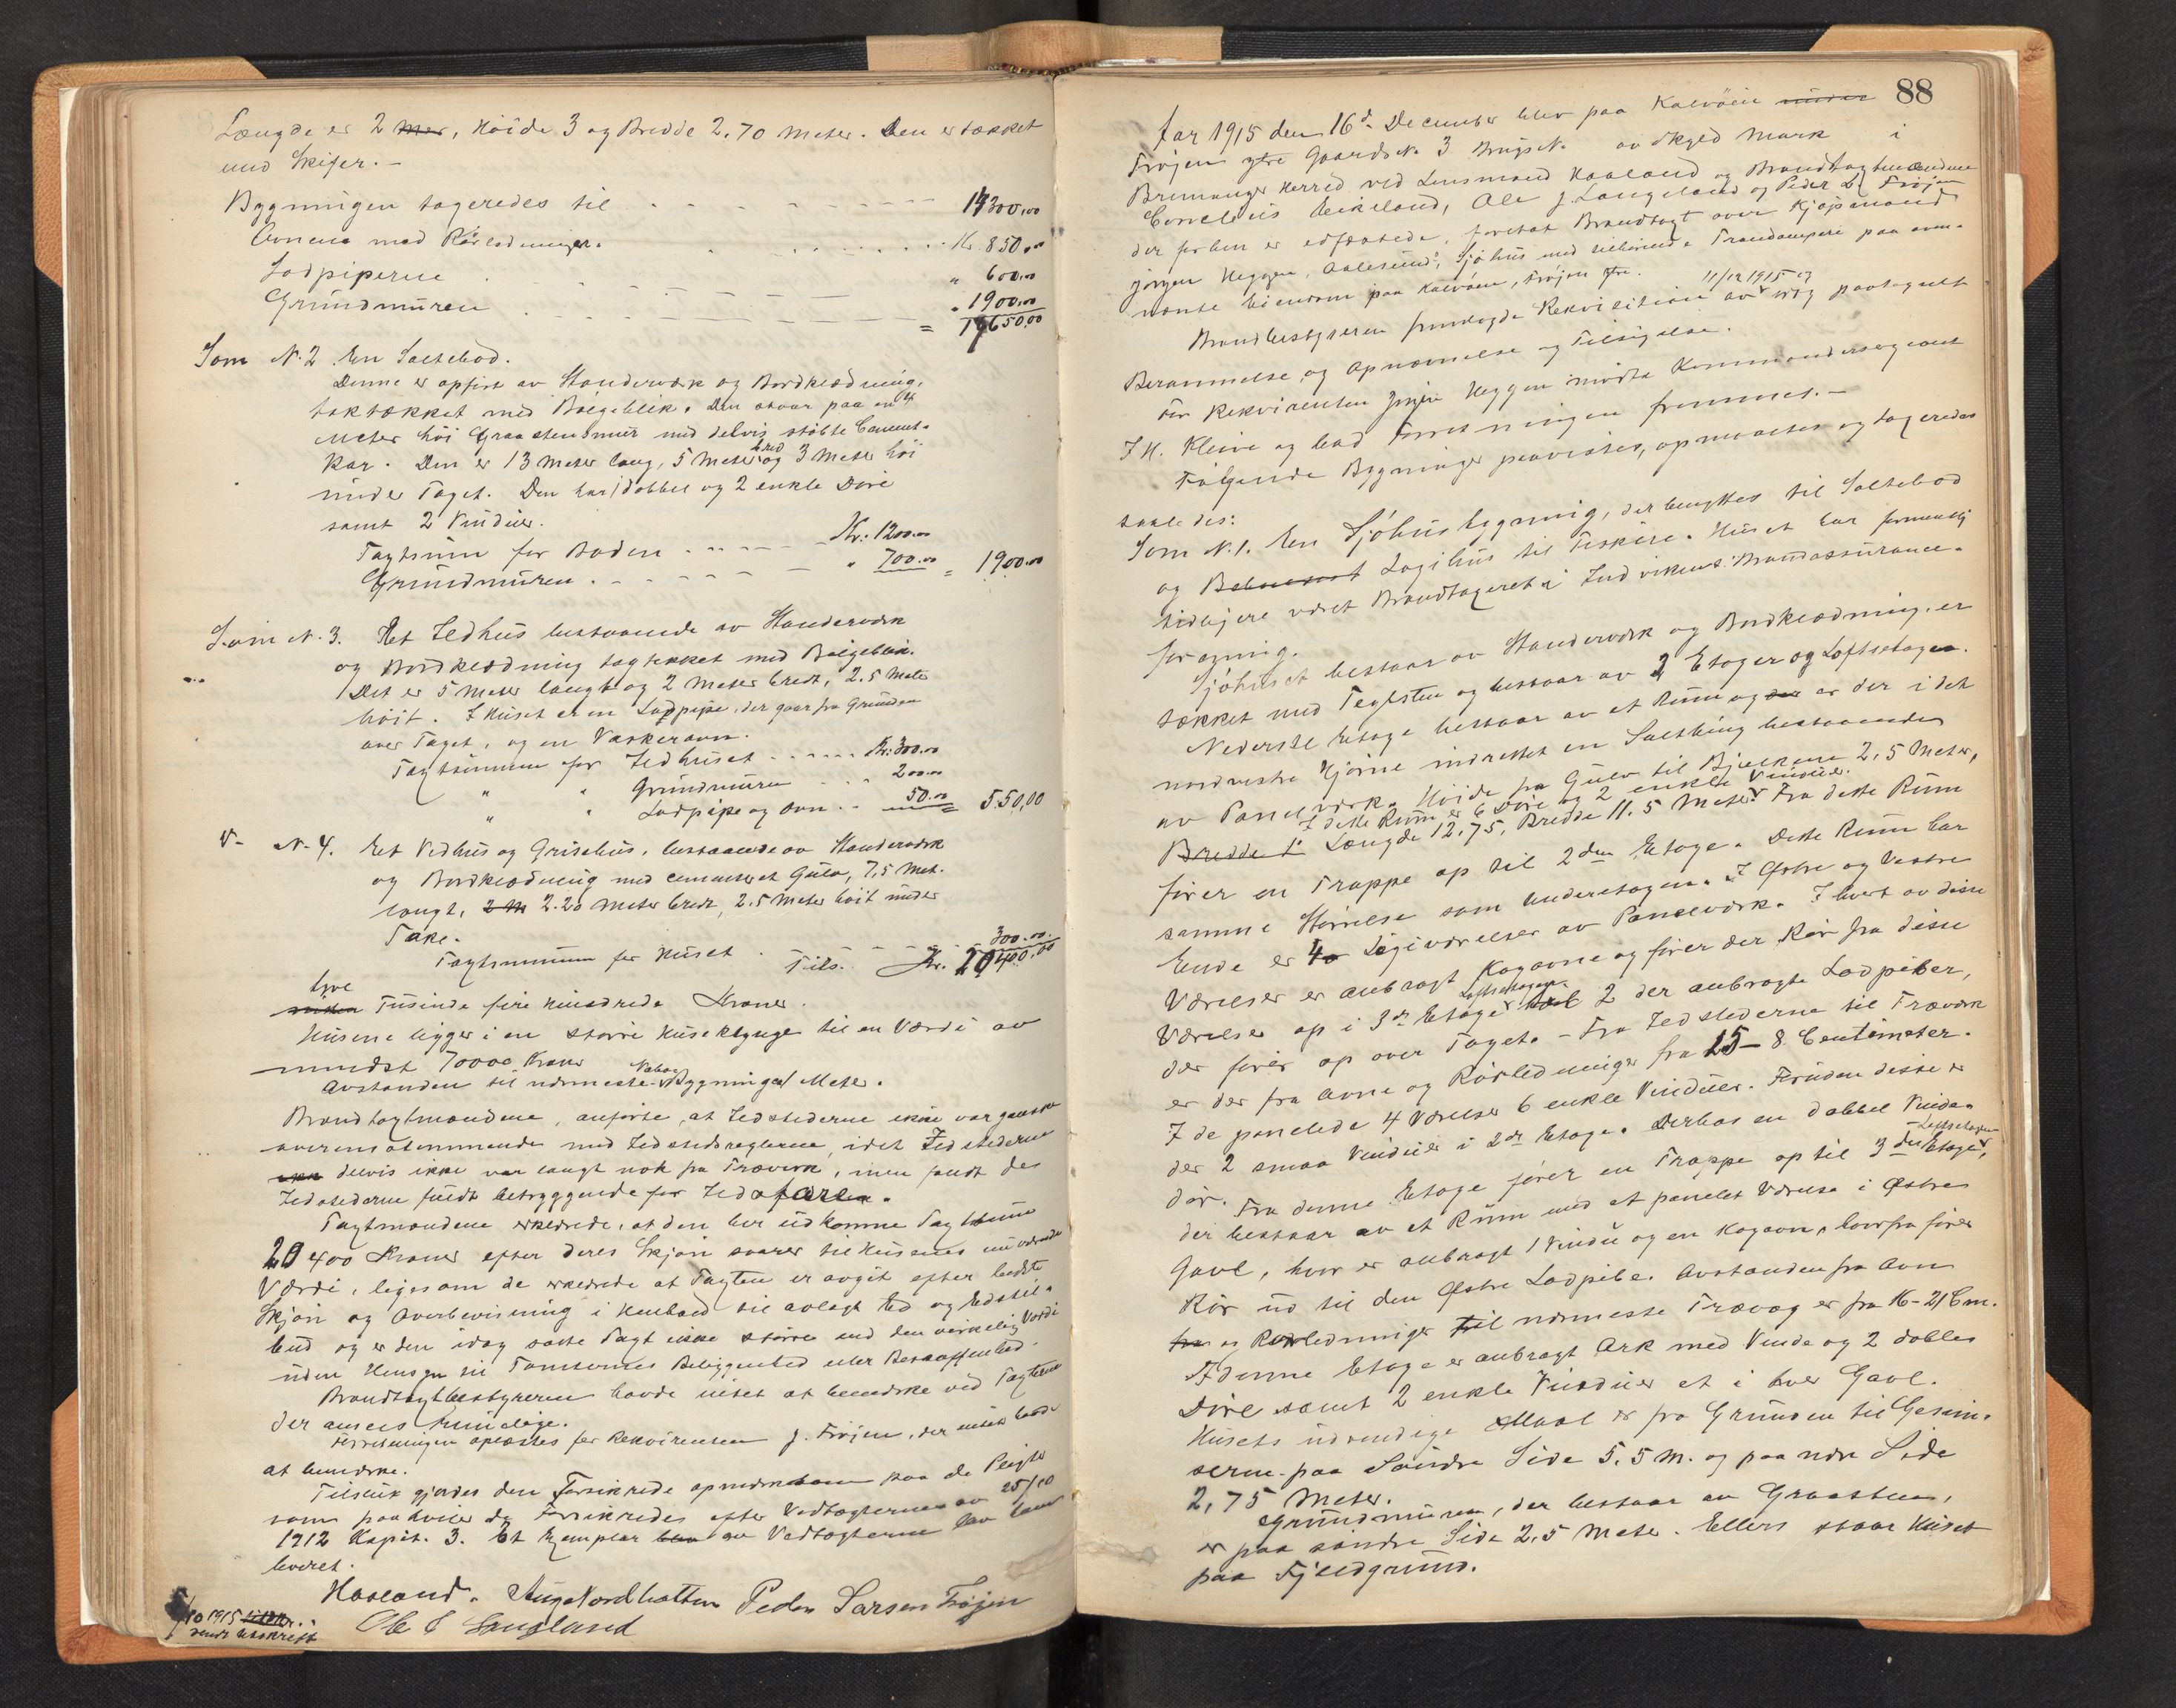 Længde er 2 mer, Höide 3 og Bredde 2.70 Meter. Den er tækket
med Skifer. -
Bygningen taxeredes til 17300,00
Ovnene med Rörledninger. Kr. 850,00
Ladpiperne " 600,00
Grundmuren " 1900,00
= 17650,00
Som N. 2. En Saltebod.
Denne er opfört av Standerværk og Bordklædning,
taktækket med Bölgeblik. Den staar paa en 4
Meter höi Graastensmur med delvis stöbte Cement-
kar. Den er 13 Meter lang, 5 Meter bred og 3 Meter höi
under Taget. Den har 1 dobbel og 2 enkle Döre
samt 2 Vinduer.
Taxtsum for Boden Kr: 1200.00
Grundmuren " 700.00 = 1900.00
Som N. 3. Et Ildhus bestaaende av Standerværk
og Bordklædning tagtækket med Bölgeblik.
Det er 5 Meter langt og 2 Meter bredt, 2.5 Meter
höit. I Huset er en Ladpipe, der gaar fra Grunden
over Taget, og en Vaskeravn.
Taxtsummen for Ildhuset Kr: 300.00
" " Grundmuren 200.00
" " Ladpipe og Ovn 50.00 = 550,00
V- N. 4. Et Vedhus og Grisehus, bestaaende av Standerværk
og Bordklædning med cementeret Gulv, 7,5 Met.
langt, 2 M 2.20 Meter bredt, 2.5 Meter höit under
Take.
Taxtsummen for Huset 300.00
Tils. Kr. 20400,00
tyve
Tusinde fire hundrede Kroner.
Husene ligger i en större Huseklynge til en Værdi av
mindst 70000 Kroner
Avstanden til nærmeste Nabo Bygninger 1 Meter.
Brandtaxtmændene, anförte, at Ildstederne ikke var ganske
overensstemmende med Ildstedsreglerne, idet Ildstederne
delvis ikke var langt nok fra Træverk, men fandt des
Ildstederne fuldt betryggende for Ildsfaren.
Taxtmændene erklærede, at den her udkomne Taxtsum
20400 Kroner efter deres Skjön svarer til Husenes nuværende
Værdi, ligesom de erklærede at Taxten er avgit efter bedste
Skjön og Overbevisning i Henhold til avlagt Ed og Edstil-
bud og er den idag satte Taxt ikke större end den virkelig Værdi
uden Hensyn til Tomternes Beliggenhed eller Beskaffenhed.
Brandtaxtbestyreren havde intet at bemærke ved Taxten
der ansees rimelige.
Forretningen oplæstes for Rekvirenten J. Fröjen, der intet havde
at bemærke.
Tilslut gjordes den Forsikrede opmerksom paa de Pligter
som paahviler de Forsikredes efter Vedtægterne av 25/10
1912 Kapit. 3. Et Exemplar blev av Vedtægterne blev
leveret.
Haaland. Aug Nordbotten Peder Larsen Fröjen
Ole J Langeland
/10 1915
sendt Utskrift
88
Aar 1915 den 16d. December blev paa Kalvöen under
Fröjen ytre Gaards N. 3 Brugs N. av skyld Mark i
Bremanger Herred ved Lensmand Haaland og Brandtaxtmændene
Cornelius Eikeland, Ole J. Langeland og Peder L. Fröjen
der forhen er edfæstede, foretat Brandtaxt over Kjöpmand
Jörgen Heggen, Aalesund's, Sjöhus med tilhörende Trandamperi paa oven-
nævnte Eiendom paa Kalvöen, Fröjen ytre.
Brandbestyreren fremlagde Rekvisition av 11/12 1915 og paategnet
Berammelse, og Opnævnelse og Tilsigelse.
For Rekvirenten Jörgen Heggen mödte Kommandersergeant
J. H. Kleive og bad Forretningen fremmet. -
Fölgende Bygninger paavistes, opmaaltes og taxeredes
saaledes:
Som N. 1. En Sjöhusbygning, der benyttes til Saltebod
og Beboenest Logihus til Fiskere. Huset har formentlig
tidligere været Brandtaxeret i Indvikens Brandassurance-
forening.
Sjöhuset bestaar av Standerværk og Bordklædning, er
tækket med Teglsten og bestaar av 2 Etager og Loftsetagen.
Nederste Etage bestaar av et Rum og er der i det
nordvestre Hjörne indrettet en Saltbing bestaaende
av Panelværk. Höide fra Gulv til Bjelkene 2,5 Meter,
I dette Rum er 6 Döre og 2 enkle Vinduer.
Bredde 1 Længde 12.75, Bredde 11.5 Meter. Fra dette Rum
förer en Trappe op til 2den Etage. Dette Rum har
samme Störrelse som Underetagen. I Östre og Vestre
Ende er 4 Logiværelser av Panelværk. I hvert av disse
Værelser er anbragt Kogovne og förer der Rör fra disse
Værelser op i 3die Etage Loftsetagen 2 der anbragte Ladpiber,
der förer op over Taget. - Fra Ildstederne til Træværk
er der fra Ovne og Rörledninger fra 15 - 8 Centimeter.
I de panelede 4 Værelser 6 enkle Vinduer. Foruden disse er
der 2 smaa Vinduer i 2de Etage. Derhos en dobbel Vinde-
dör. Fra denne Etage förer en Trappe op til 3die Etage, Loftsetagen
der bestaar av et Rum med et panelet Værelse i Östre
Gavl, hvor er anbragt 1 Vindu og en Kogovn, hvorfra förer
Rör ud til den Östre Ladpibe. Avstanden fra Ovn
og Rörledninger til nærmeste Trævæg er fra 16 - 21 Cm.
I denne Etage er anbragt Ark med Vinde og 2 dobble
Döre samt 2 enkle Vinduer et i hver Gavl.
Husets udvendige Maal er fra Grunden til Gesim-
serne paa Söndre Side 5.5 M. og paa ndre Side
2,75 Meter.
Grundmuren, der bestaar av Graasten,
er paa söndre Side 2.5 Meter. Ellers staar Huset
paa Fjeldgrund.